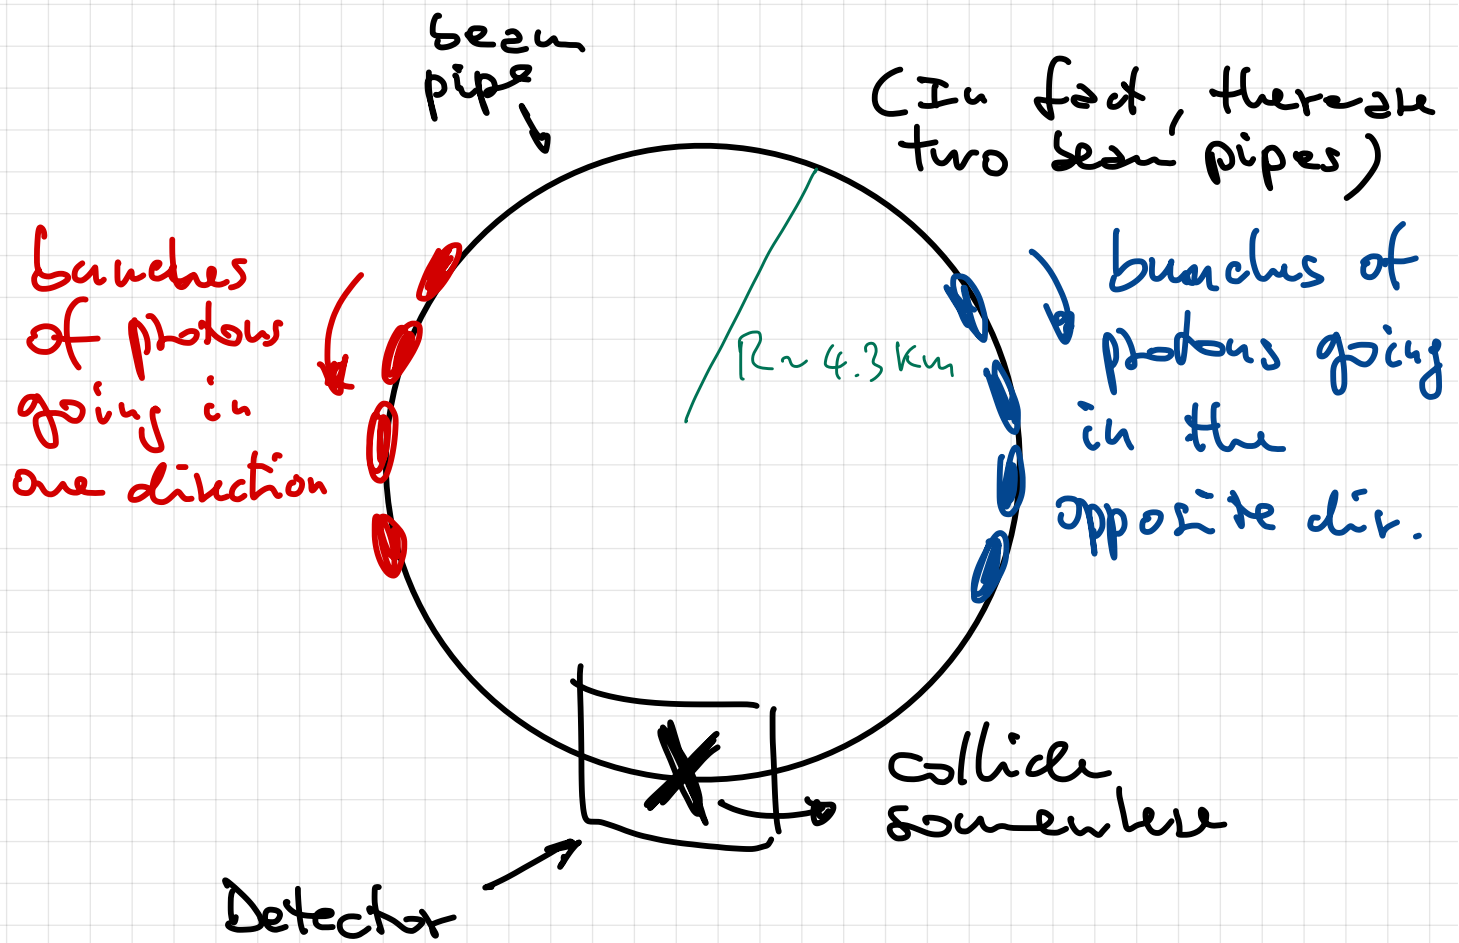 beam
pipe
(In fact, there are
two beam pipes)
bunches
of protons
going in
one direction
bunches of
protons going
in the
opposite dir.
R~4.3 km
collide
somewhere
Detector